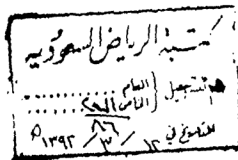 مكتبة الرياض السعودية
التسجيل { العام ..........
الخاص ٨٦
التاريخ في ١٢ / ٣ / ١٣٩٢ ه